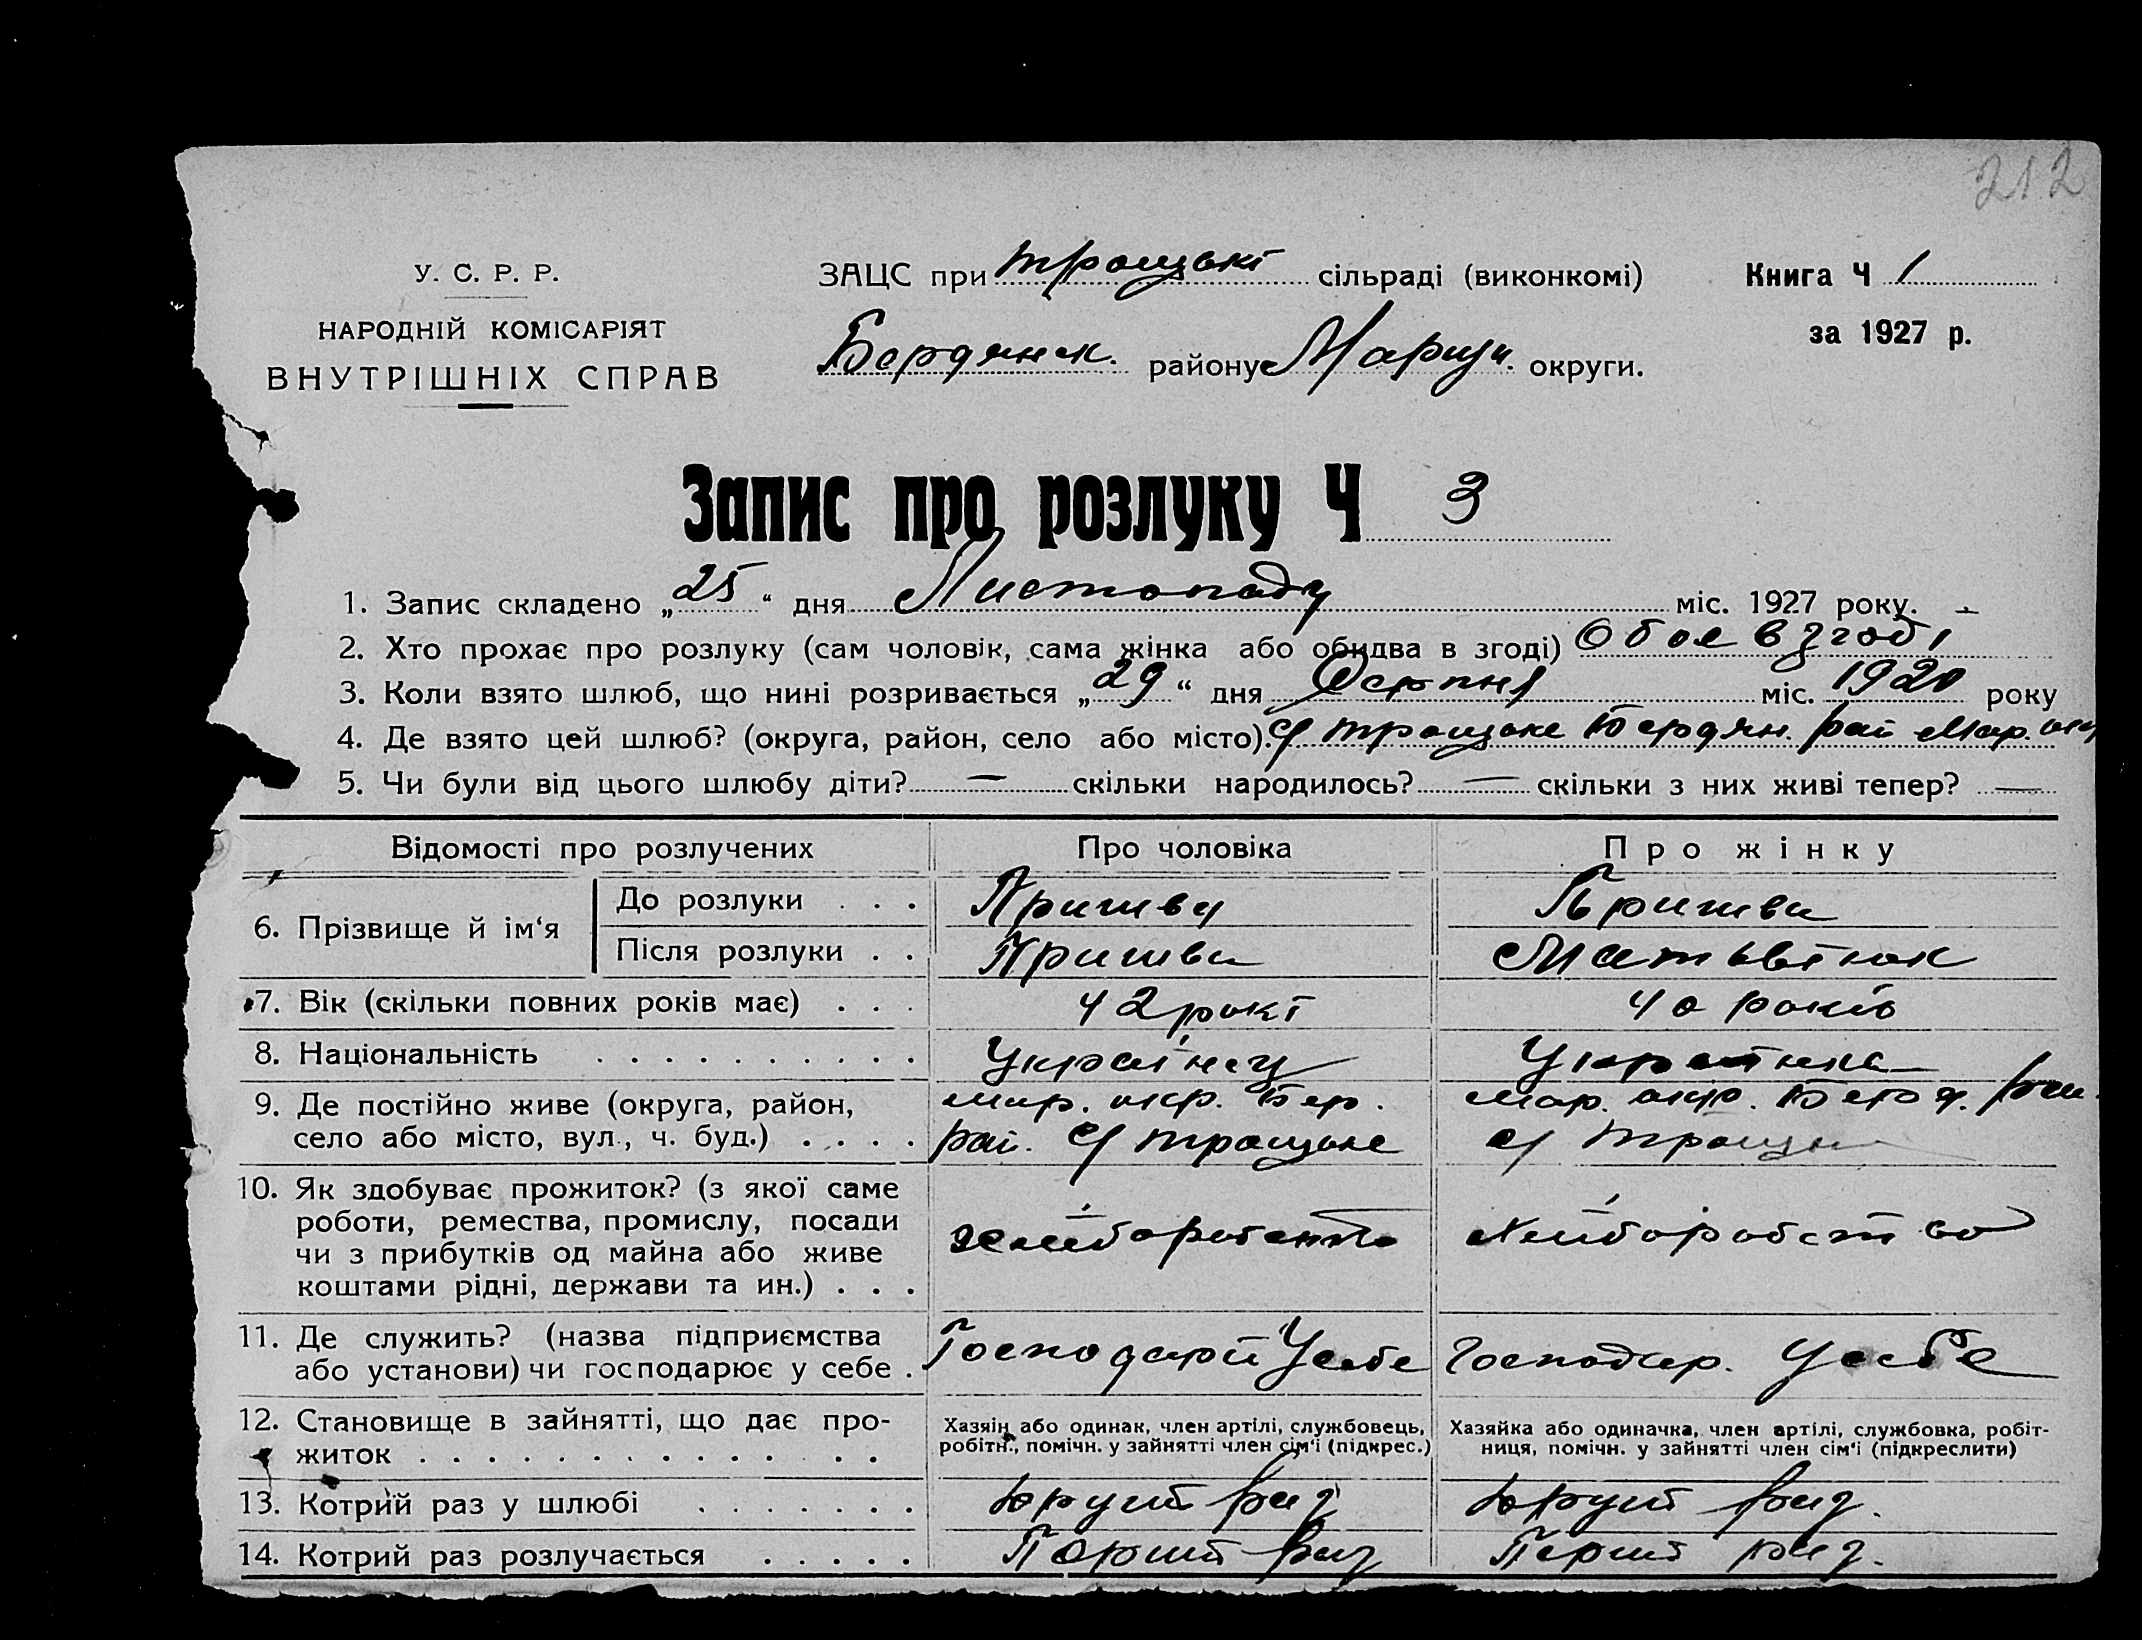 212
У. С. Р. Р.
НАРОДНІЙ КОМІСАРІЯТ
ВНУТРІШНІХ СПРАВ
ЗАЦС при Троцькі сільраді (виконкомі)
Бердянск. району Маріуп. округи.
Книга Ч 1
за 1927 р.
Запис про розлуку Ч 3
1. Запис складено „25“ дня Листопаду міс. 1927 року.
2. Хто прохає про розлуку (сам чоловік, сама жінка або обидва в згоді) Обоє в згоді
3. Коли взято шлюб, що нині розривається „29“ дня Серпня міс. 1920 року
4. Де взято цей шлюб? (округа, район, село або місто). с/ Троцьке Бердян. рай Мар. окр
5. Чи були від цього шлюбу діти? — скільки народилось? — скільки з них живі тепер? —
Відомості про розлучених
Про чоловіка
Про жінку
6. Прізвище й ім‘я
До розлуки . . .
Після розлуки . .
7. Вік (скільки повних років має) . . . 42 рокі 40 років
8. Національність . . . . . . . . . . Українец Українка
9. Де постійно живе (округа, район, село або місто, вул., ч. буд.) . . . .
мар. окр. Бер. рай. с/ Троцьке
мар. окр. Берд. рай. с/
10. Як здобуває прожиток? (з якої саме
роботи, ремества, промислу, посади
чи з прибутків од майна або живе
коштами рідні, держави та ин.) . . .
Хліборобство
11. Де служить? (назва підприємства
або установи) чи господарює у себе .
Господарй У себе
Господар. У себе
12. Становище в зайнятті, що дає про-
житок . . . . . . . . . . . . . .
Хазяїн або одинак, член артілі, службовець,
робітн., помічн. у зайнятті член сім‘ї (підкрес.)
Хазяйка або одиначка, член артілі, службовка, робіт-
ниця, помічн. у зайнятті член сім‘ї (підкреслити)
13. Котрий раз у шлюбі . . . . . . . другий раз другий раз.
14. Котрий раз розлучається . . . . . Перший раз Перший раз.